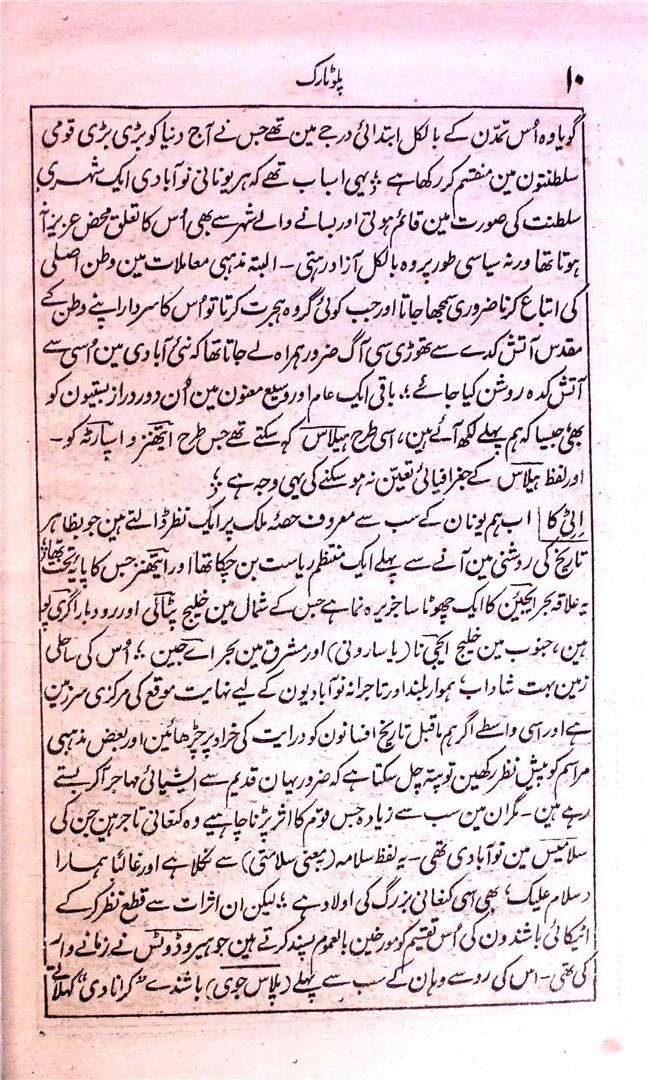 ۱۰
پلوٹارک
گویا وہ اُس تمدّن کے بالکل ابتدائی درجے مین تھے جس نے آج دنیا کو بڑی بڑی قومی
سلطنتون مین منقسم کر رکھا ہے ؛ یہی اسباب تھے کہ ہر یونانی نو آبادی ایک شہری
سلطنت کی صورت مین قائم ہوتی اور بسانے والے شہر سے بھی اُس کا تعلق محض عزیزانہ
ہوتا تھا ورنہ سیاسی طور پر وہ بالکل آزاد رہتی ۔ البتہ مذہبی معاملات مین وطن اصلی
کی اتباع کرنا ضروری سمجھا جاتا اور جب کوئی گروہ ہجرت کرتا تو اُس کا سردار اپنے وطن کے
مقدس آتش کدے سے تھوڑی سی آگ ضرور ہمراہ لے جاتا تھا کہ نئی آبادی مین اُسی سے
آتش کدہ روشن کیا جائے ؛ باقی ایک عام اور وسیع معنون مین اُن دور دراز بستیون کو
بھی جیسا کہ ہم پہلے لکھ آئے ہین، اسی طرح ہیلاس کہہ سکتے تھے جس طرح ایتھنز و اسپارٹہ کو ۔
اور لفظ ہیلاس کے جغرافیائی تعین نہ ہو سکنے کی یہی وجہ ہے ؛
اٹی کا اب ہم یونان کے سب سے معروف حصۂ ملک پر ایک نظر ڈالتے ہین جو بظاہر
تاریخ کی روشنی مین آنے سے پہلے ایک منتظم ریاست بن چکا تھا اور ایتھنز جس کا پایہ تخت تھا؛
یہ علاقہ بحر ایجین کا ایک چھوٹا سا جزیرہ نما ہے جس کے شمال مین خلیج پٹالی اور رودبار اگری پو
ہین، جنوب مین خلیج ایجی نا (یا سارونی) اور مشرق مین بحر اے جین ؛ اُس کی ساحلی
زمین بہت شاداب، ہموار بلند اور تاجرانہ نو آبادیون کے لیے نہایت موقع کی مرکزی سرزمین
ہے اور اسی واسطے اگر ہم ماقبل تاریخ افسانون کو درایت کی خراد پر چڑھائین اور بعض مذہبی
مراسم کو پیش نظر رکھین تو پتہ چل سکتا ہے کہ ضرور یہان قدیم سے ایشیائی مہاجر آ کر بستے
رہے ہین ۔ مگر ان مین سب سے زیادہ جس قوم کا اثر پڑنا چاہیے وہ کنعانی تاجر ہین جن کی
سلامیس مین نو آبادی تھی ۔ یہ لفظ سلامہ (بمعنی سلامتی) سے نکلا ہے اور غالبًا ہمارا
’سلام علیک‘ بھی اسی کنعانی بزرگ کی اولاد ہے ؛ لیکن ان اثرات سے قطع نظر کر کے
اٹیکائی باشندون کی اُس تقسیم کو مورخین بالعموم پسند کرتے ہین جو ہیروڈوٹس نے زمانے وار
کی تھی ۔ اس کی رو سے وہان کے سب سے پہلے (پلاس جوی) باشندے ”کرانادی“ کہلاتے